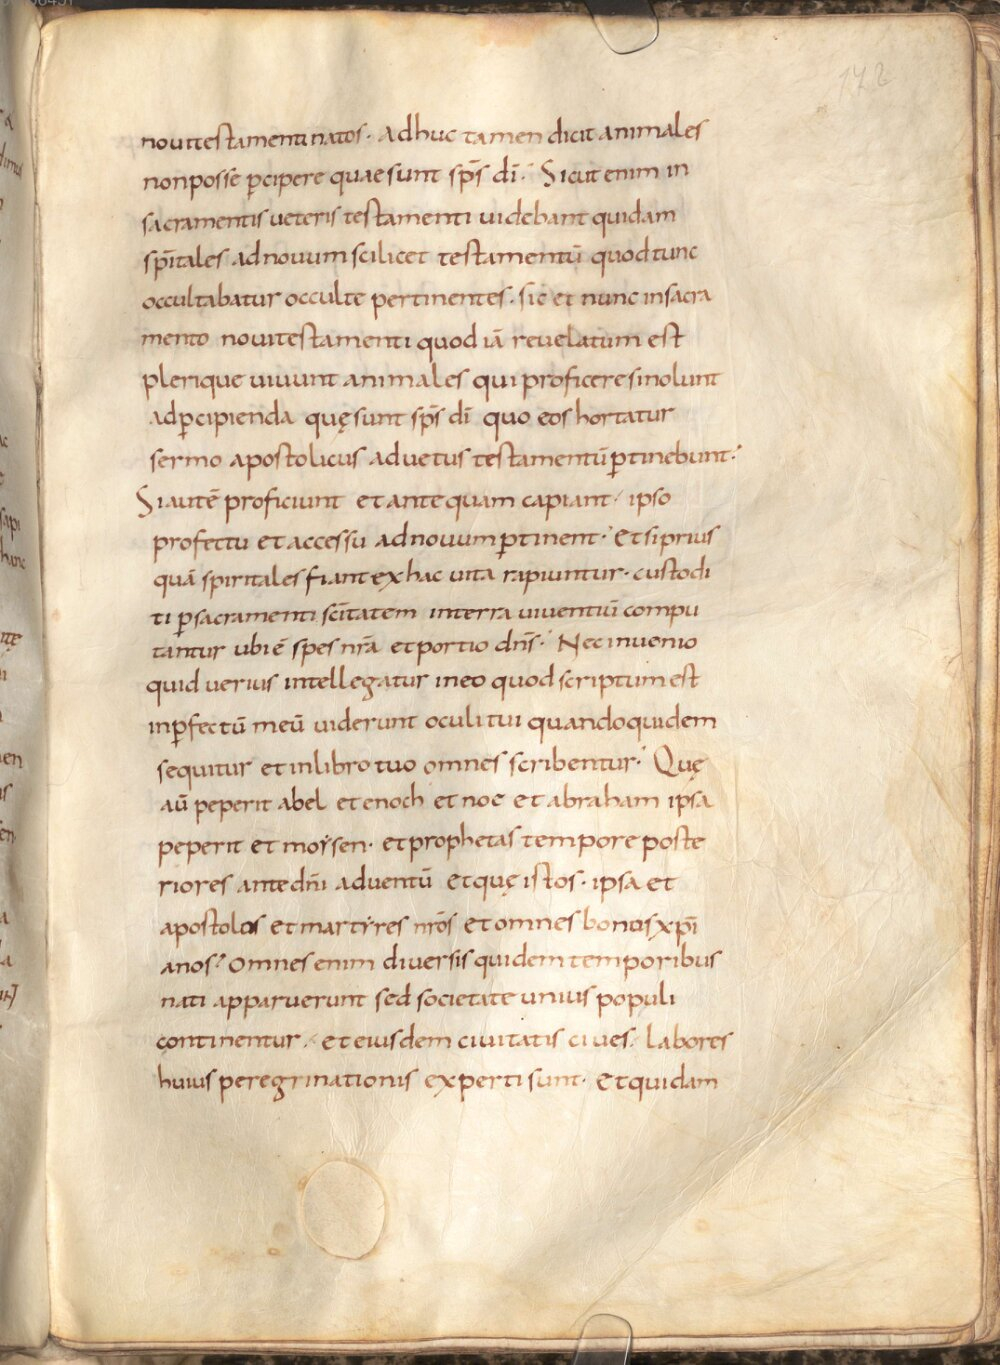 172
noui testamenti natos. Adhuc tamen dicit animales
non posse ꝑcipere quae sunt sp̄s dī. Sicut enim in
sacramentis ueteris testamenti uidebant quidam
sp̄itales ad nouum scilicet testamentū quod tunc
occultabatur occulte pertinentes. sic et nunc in sacra
mento noui testamenti quod iā reuelatum est
plerique uiuunt animales qui proficere si nolunt
ad ꝑcipienda quę sunt sp̄s dī quo eos hortatur
sermo apostolicus ad uetus testamentū ꝑtinebunt.
Si autē proficiunt et antequam capiant. ipso
profectu et accessu ad nouum ꝑtinent. Et si prius
quā spiritales fiant ex hac uita rapiuntur. custodi
ti ꝑ sacramenti sc̄itatem in terra uiuentiū compu
tantur ubi ē spes nr̄a et portio dn̄s. Nec inuenio
quid uerius intellegatur in eo quod scriptum est
inꝑfectū meū uiderunt oculi tui quandoquidem
sequitur et in libro tuo omnes scribentur. Quę
aū peperit abel et enoch et noe et abraham ipsa
peperit et moẏsen. et prophetas tempore poste
riores ante dn̄i aduentū et quę istos. ipsa et
apostolos et martẏres nr̄os et omnes bonos xp̄i
anos. Omnes enim diuersis quidem temporibus
nati apparuerunt sed societate unius populi
continentur. et eiusdem ciuitatis ciues. labores
huius peregrinationis experti sunt. Et quidam